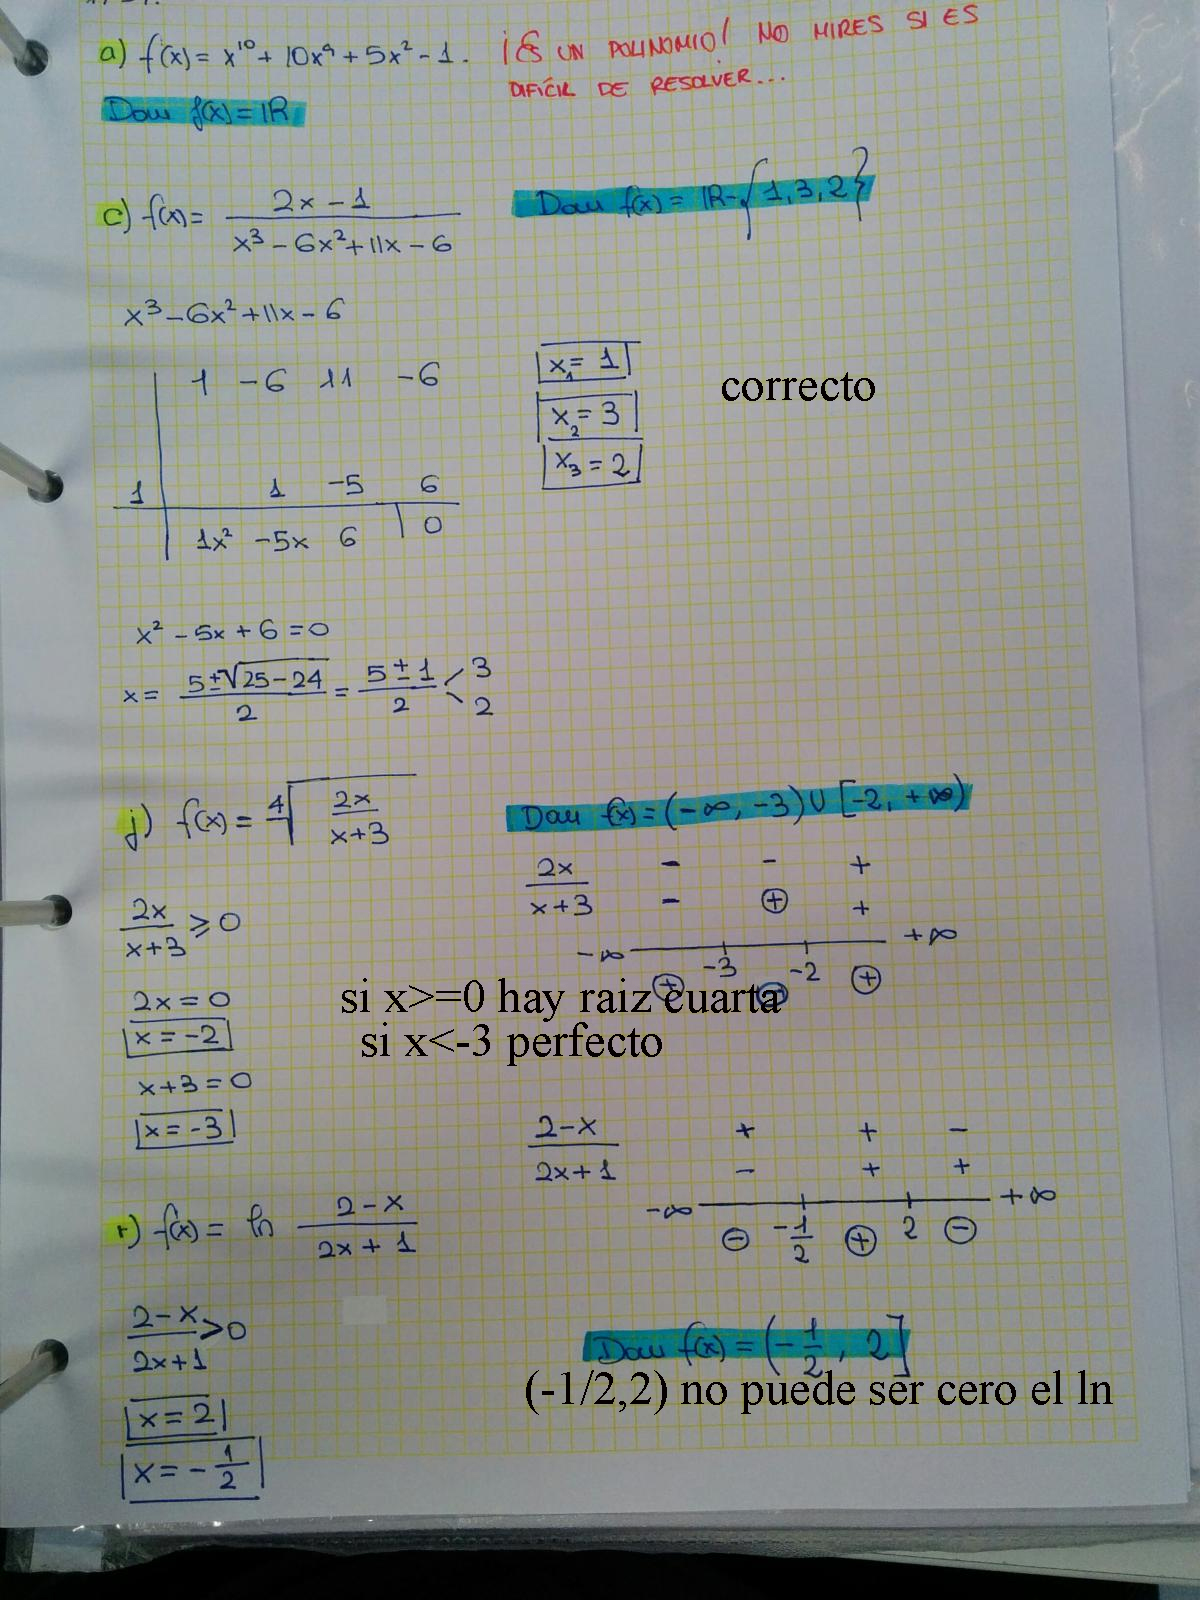 a) f(x) = x¹⁰ + 10x⁹ + 5x² - 1.
¡ES UN POLINOMIO! NO MIRES SI ES
DIFÍCIL DE RESOLVER...
Dom f(x) = ℝ
c) f(x) = (2x - 1)/(x³ - 6x² + 11x - 6)
Dom f(x) = ℝ - {1, 3, 2}
x³ - 6x² + 11x - 6
1 -6 11 -6
1 1 -5 6
1x² -5x 6 | 0
x₁ = 1
x₂ = 3
x₃ = 2
correcto
x² - 5x + 6 = 0
x = (5 ± √25 - 24)/2 = (5 ± 1)/2 < 3
2
j) f(x) = ⁴√(2x/(x+3))
Dom f(x) = (-∞, -3) ∪ [-2, +∞)
2x/(x+3) ≥ 0
2x - - +
x+3 - + +
-∞ -3 -2 +∞
+ - +
2x = 0
x = -2
x + 3 = 0
x = -3
si x>=0 hay raiz cuarta
si x<-3 perfecto
r) f(x) = ln (2 - x)/(2x + 1)
2-x + + -
2x+1 - + +
-∞ -1/2 2 +∞
- + -
(2 - x)/(2x + 1) > 0
x = 2
x = -1/2
Dom f(x) = (-1/2, 2]
(-1/2,2) no puede ser cero el ln